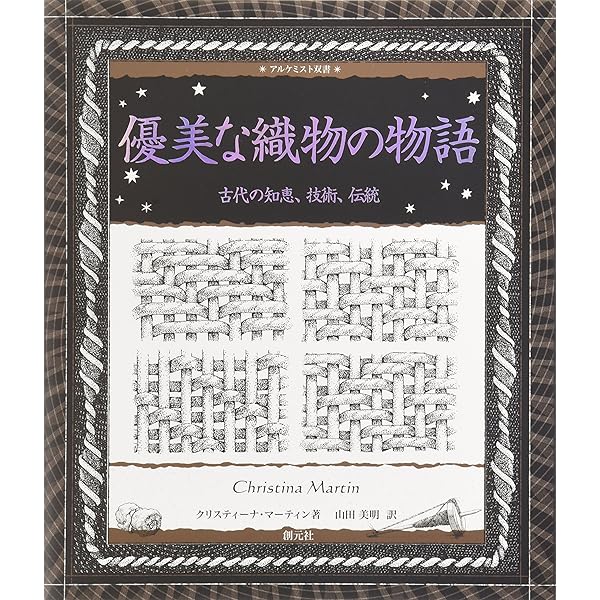 ＊アルケミスト双書＊
優美な織物の物語
古代の知恵、技術、伝統
Christina Martin
クリスティーナ・マーティン著 山田美明 訳
創元社